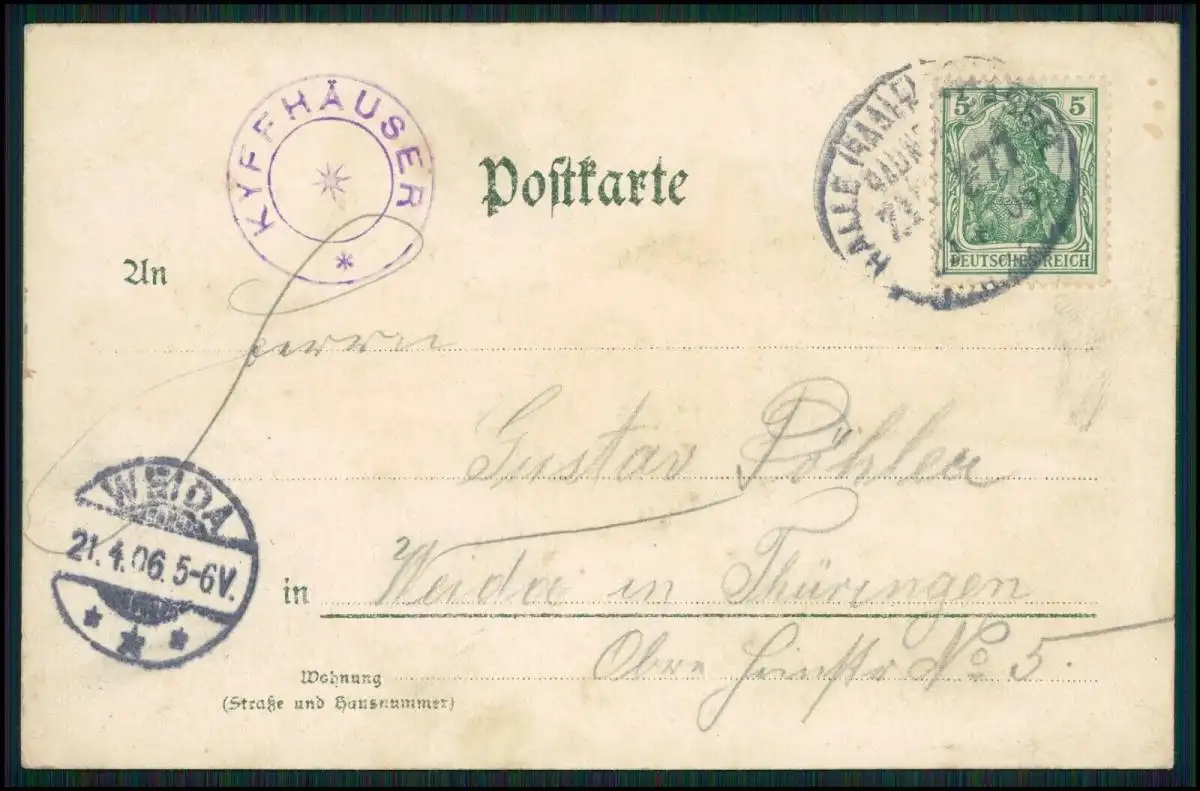 KYFFHÄUSER
Postkarte
HALLE (SAALE)
ZUG 677
5 5
DEUTSCHES REICH
An
Herrn
Gustav Pöhler
WEIDA
21.4.06.5-6V.
in Weida in Thüringen
Obre No 5.
Wohnung
(Straße und Hausnummer)